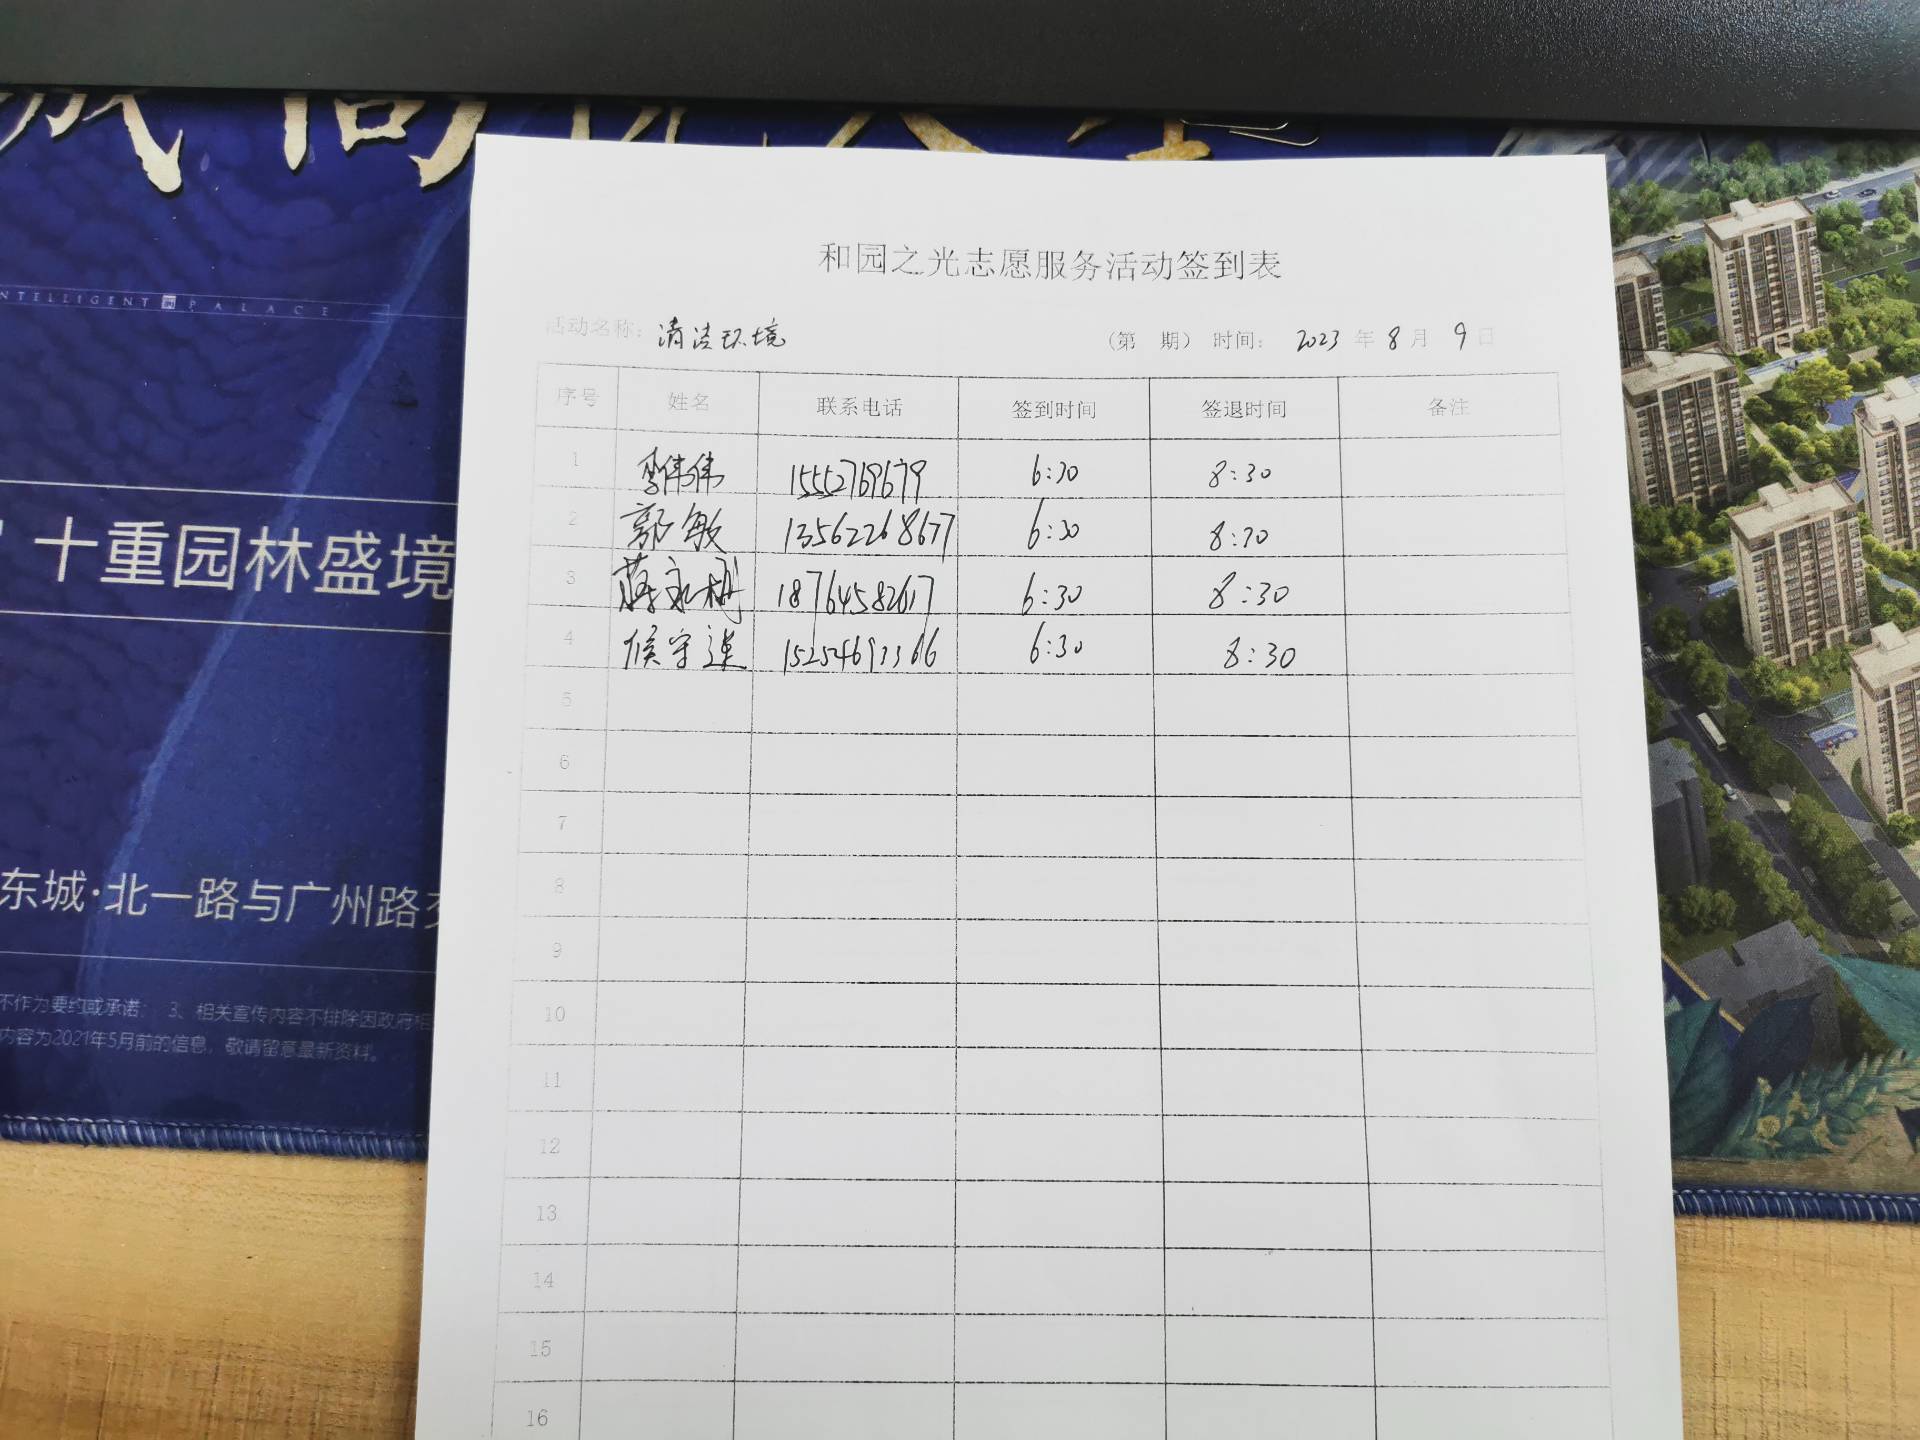 INTELLIGENT PALACE
十重园林盛境
东城·北一路与广州路
不作为要约或承诺; 3、相关宣传内容不排除因政府相
内容为2021年5月前的信息,敬请留意最新资料。
和园之光志愿服务活动签到表
活动名称: 清洁环境 (第 期) 时间: 2023 年 8 月 9 日
序号 姓名 联系电话 签到时间 签退时间 备注
1 李伟伟 15552769679 6:30 8:30
2 郭敏 13562268677 6:30 8:30
3 蒋永 18764582617 6:30 8:30
4 侯守连 15254693366 6:30 8:30
5
6
7
8
9
10
11
12
13
14
15
16